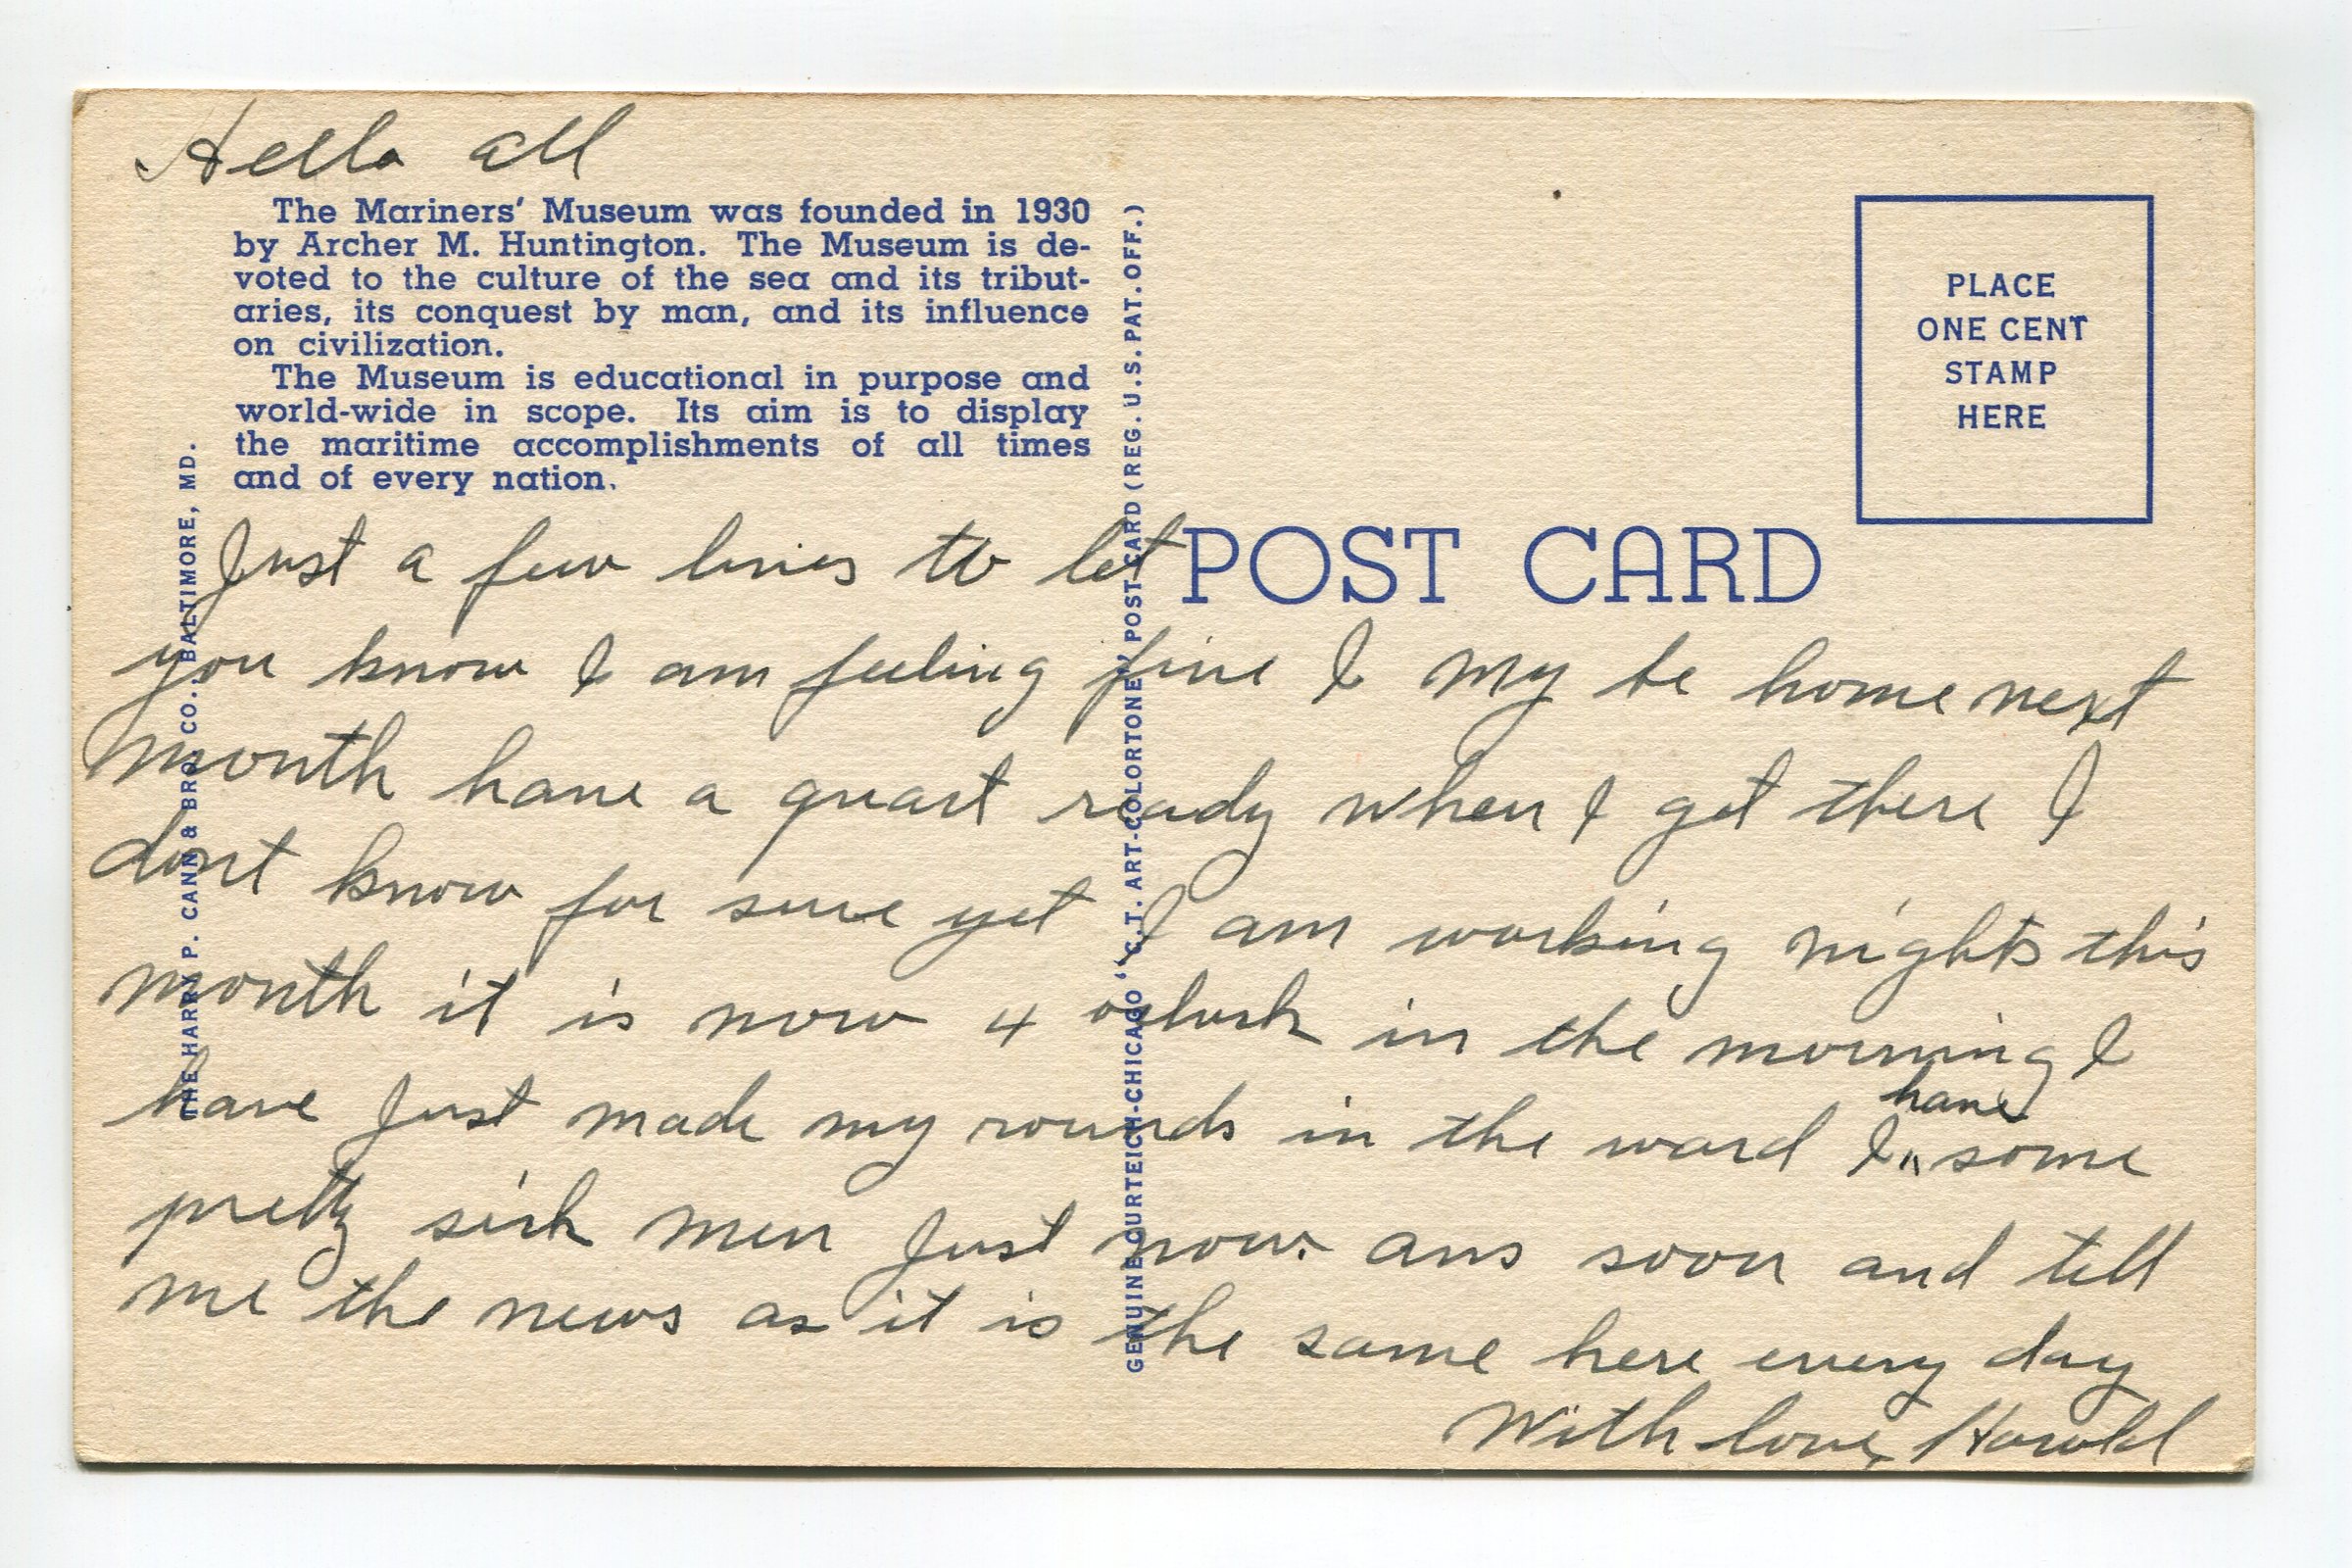 Hello all
The Mariners' Museum was founded in 1930
by Archer M. Huntington. The Museum is de-
voted to the culture of the sea and its tribut-
aries, its conquest by man, and its influence
on civilization.
The Museum is educational in purpose and
world-wide in scope. Its aim is to display
the maritime accomplishments of all times
and of every nation.
THE HARRY P. CANN & BRO. CO., BALTIMORE, MD.
GENUINE CURTEICH-CHICAGO "C.T. ART-COLORTONE" POST CARD (REG. U.S. PAT. OFF.)
PLACE
ONE CENT
STAMP
HERE
POST CARD
Just a few lines to let
you know I am feeling fine I my be home next
month have a quart ready when I get there I
dont know for sure yet I am working nights this
month it is now 4 oclock in the morning I
have Just made my rounds in the ward I have some
pretty sick men Just now. ans soon and tell
me the news as it is the same here every day
With love, Harold